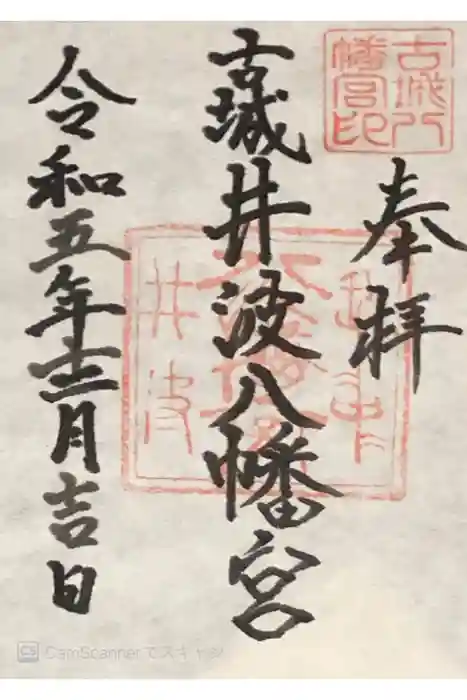 古城八
幡宮印
奉拝
古城井波八幡宮
越中
八幡宮
井波
令和五年十二月吉日
CS CamScanner でスキャン